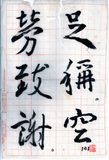 足稱空
勞致謝
101